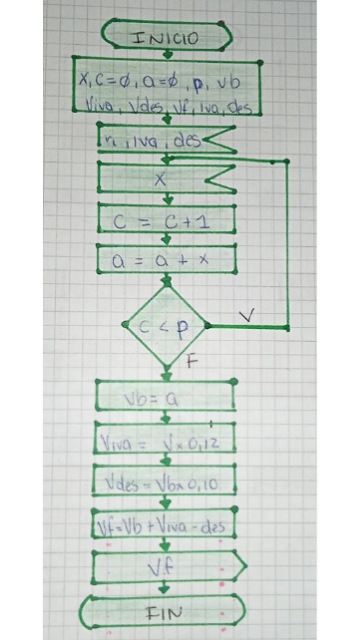 INICIO
X, C=Ø, a=Ø, p, vb
Viva, Vdes, Vf, iva, des
n, iva, des
X
C = C+1
a = a + x
C < p
V
F
Vb = a
Viva = V x 0,12
Vdes = Vb x 0,10
Vf = Vb + Viva - des
V.f
FIN